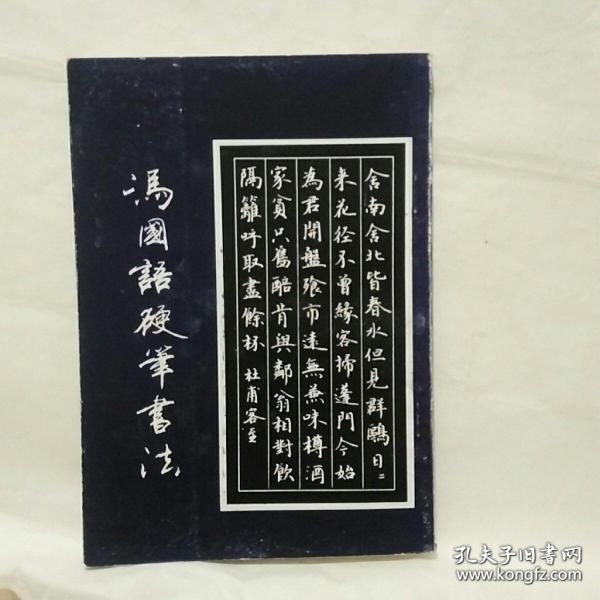 馮國語硬筆書法
舍南舍北皆春水但見群鷗日〻
来花径不曾緣客掃蓬門今始
為君開盤飱市遠無兼味樽酒
家貧只舊醅肯與鄰翁相對飲
隔籬呼取盡餘杯 杜甫客至
孔夫子旧书网
www.kongfz.com